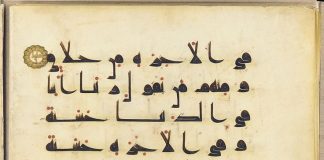 في الاخرة من خلاق
ومنهم من يقول ربنا اتنا
في الدنيا حسنة
وفي الاخرة حسنة